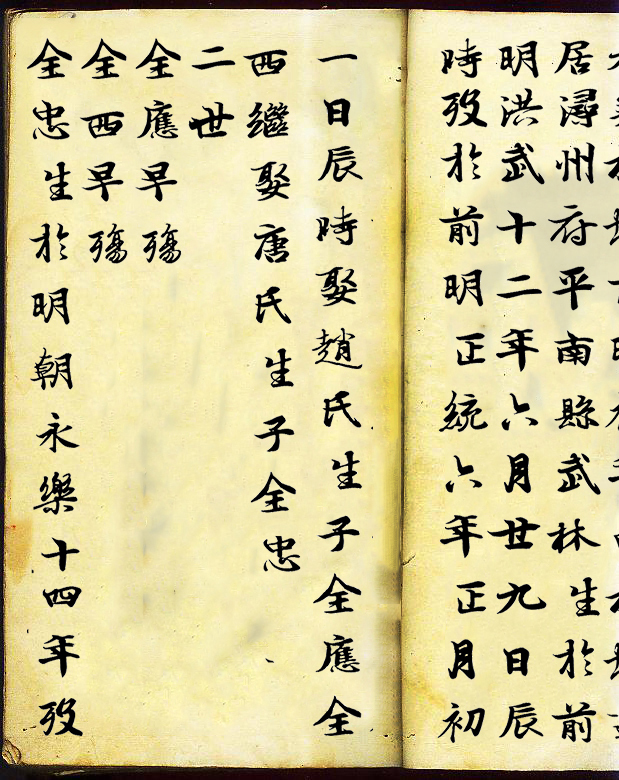 居潯州府平南縣武林生於前
明洪武十二年六月廿九日辰
時歿於前明正統六年正月初
一日辰時娶趙氏生子全應全
西繼娶唐氏生子全忠
二世
全應早殤
全西早殤
全忠生於明朝永樂十四年歿